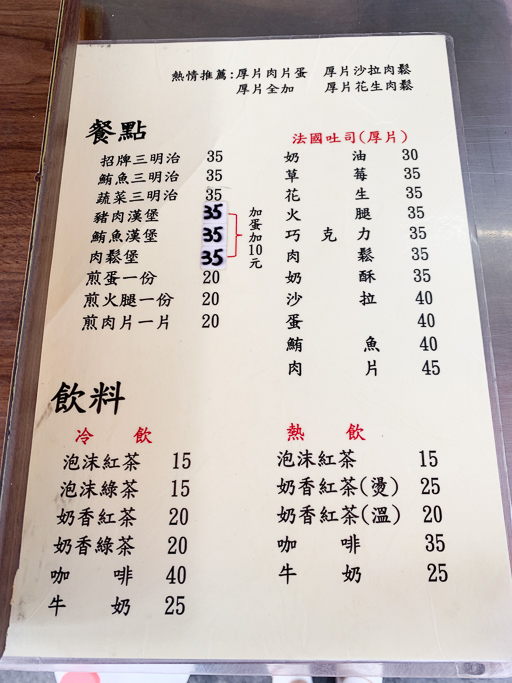 熱情推薦:厚片肉片蛋 厚片沙拉肉鬆
厚片全加 厚片花生肉鬆
餐點
招牌三明治 35
鮪魚三明治 35
蔬菜三明治 35
豬肉漢堡 35
鮪魚漢堡 35
肉鬆堡 35
加蛋加10元
煎蛋一份 20
煎火腿一份 20
煎肉片一片 20
法國吐司(厚片)
奶油 30
草莓 35
花生 35
火腿 35
巧克力 35
肉鬆 35
奶酥 35
沙拉 40
蛋 40
鮪魚 40
肉片 45
飲料
冷飲
泡沫紅茶 15
泡沫綠茶 15
奶香紅茶 20
奶香綠茶 20
咖啡 40
牛奶 25
熱飲
泡沫紅茶 15
奶香紅茶(燙) 25
奶香紅茶(溫) 20
咖啡 35
牛奶 25